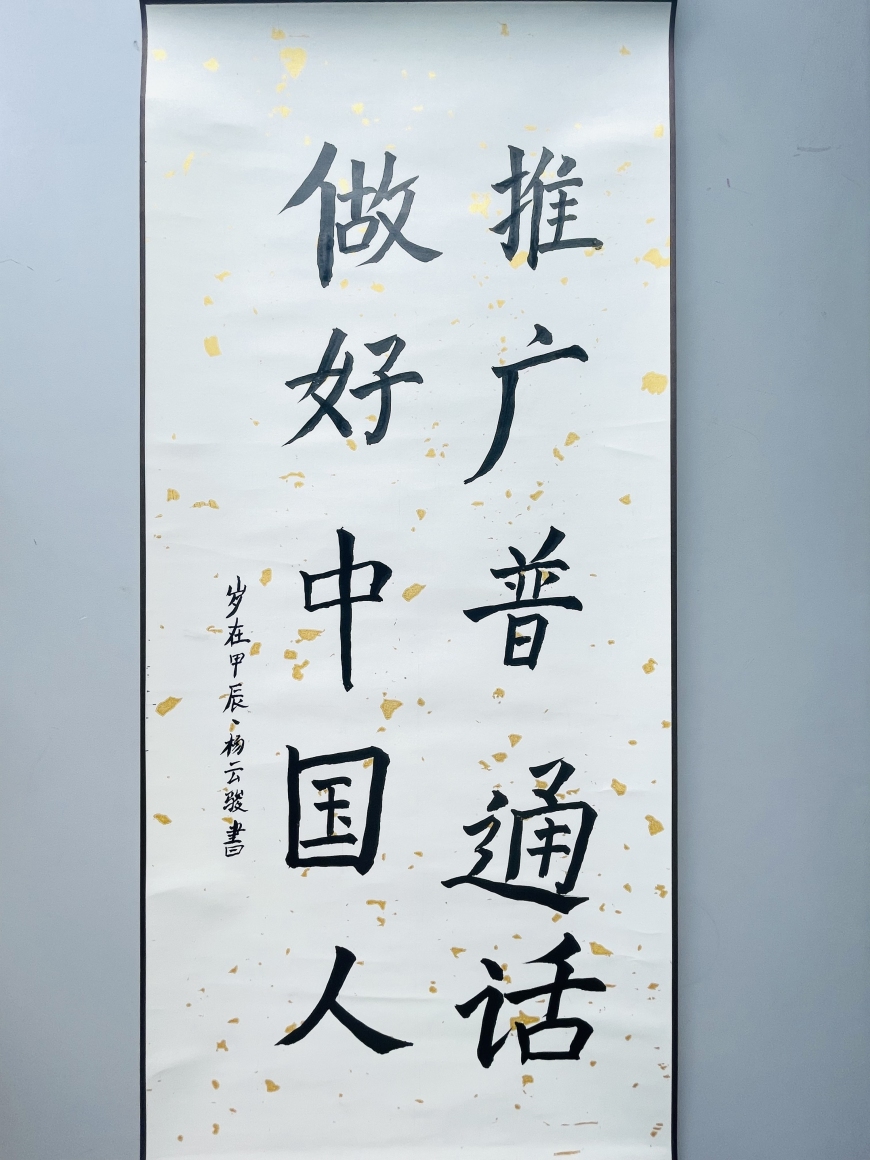 推广普通话
做好中国人
岁在甲辰、杨云骏書